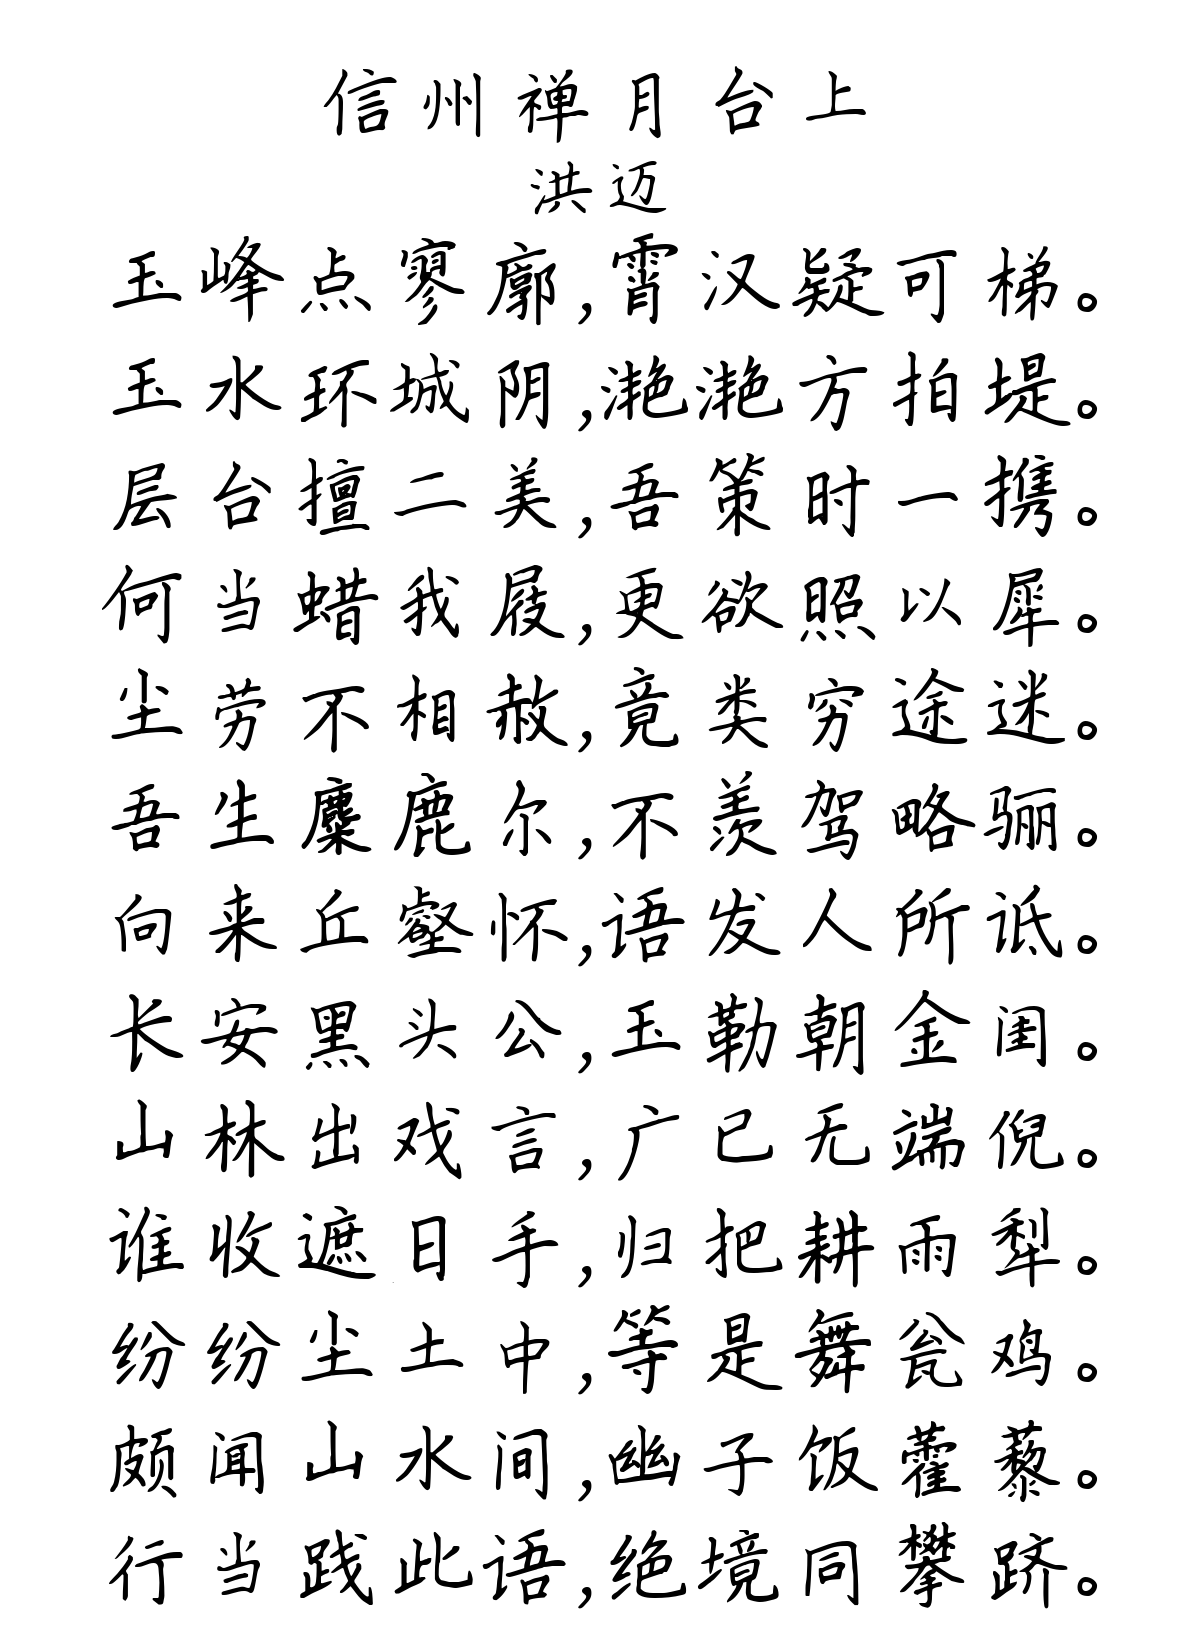 信州禅月台上
洪迈
玉峰点寥廓,霄汉疑可梯。
玉水环城阴,滟滟方拍堤。
层台擅二美,吾策时一携。
何当蜡我屐,更欲照以犀。
尘劳不相赦,竟类穷途迷。
吾生麋鹿尔,不羡驾略骊。
向来丘壑怀,语发人所诋。
长安黑头公,玉勒朝金闺。
山林出戏言,广已无端倪。
谁收遮日手,归把耕雨犁。
纷纷尘土中,等是舞瓮鸡。
颇闻山水间,幽子饭藿藜。
行当践此语,绝境同攀跻。